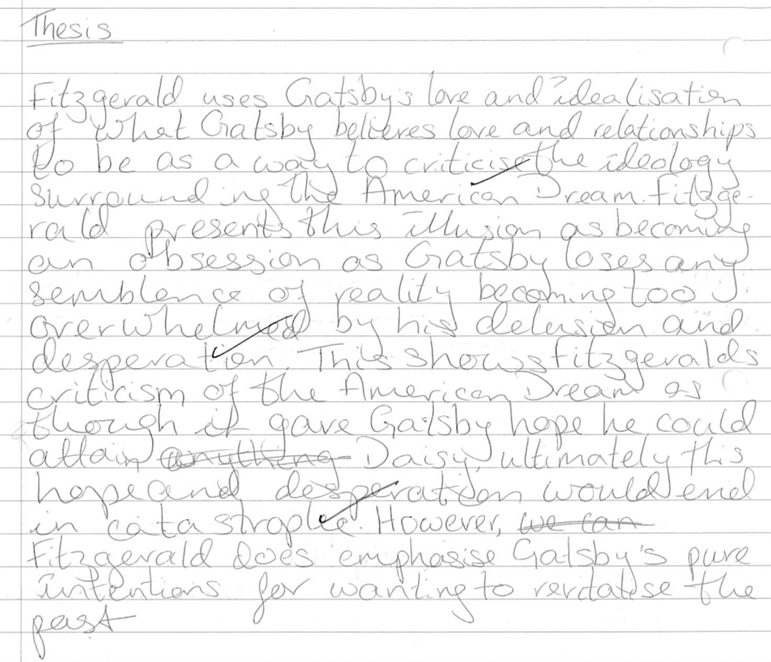 Thesis
Fitzgerald uses Gatsby's love and idealisation
of what Gatsby believes love and relationships
to be as a way to criticise the ideology
surrounding the American Dream. Fitzge-
rald presents this illusion as becoming
an obsession as Gatsby loses any
semblence of reality becoming too
overwhelmed by his delusion and
desperation. This shows fitzgeralds
criticism of the American Dream as
though it gave Gatsby hope he could
attain anything Daisy, ultimately this
hope and desperation would end
in catastrophe. However, we can
Fitzgerald does emphasise Gatsby's pure
intentions for wanting to the
past